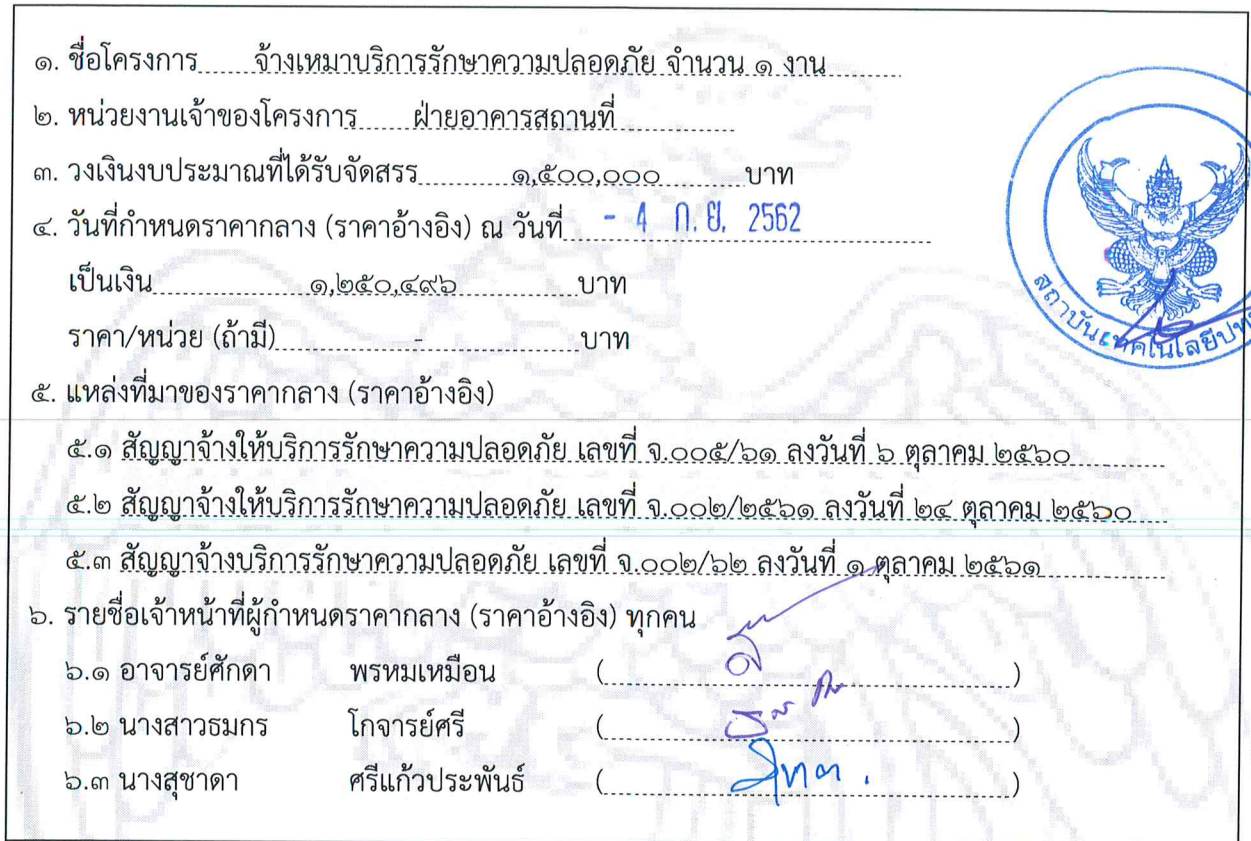 ๑. ชื่อโครงการ จ้างเหมาบริการรักษาความปลอดภัย จำนวน ๑ งาน
๒. หน่วยงานเจ้าของโครงการ ฝ่ายอาคารสถานที่
๓. วงเงินงบประมาณที่ได้รับจัดสรร ๑,๕๐๐,๐๐๐ บาท
๔. วันที่กำหนดราคากลาง (ราคาอ้างอิง) ณ วันที่ - 4 ก.ย. 2562
เป็นเงิน ๑,๒๕๐,๔๙๖ บาท
ราคา/หน่วย (ถ้ามี) - บาท
สถาบันเทคโนโลยีปทุ
๕. แหล่งที่มาของราคากลาง (ราคาอ้างอิง)
๕.๑ สัญญาจ้างให้บริการรักษาความปลอดภัย เลขที่ จ.๐๐๕/๖๑ ลงวันที่ ๖ ตุลาคม ๒๕๖๐
๕.๒ สัญญาจ้างให้บริการรักษาความปลอดภัย เลขที่ จ.๐๐๒/๒๕๖๑ ลงวันที่ ๒๔ ตุลาคม ๒๕๖๐
๕.๓ สัญญาจ้างบริการรักษาความปลอดภัย เลขที่ จ.๐๐๒/๖๒ ลงวันที่ ๑ ตุลาคม ๒๕๖๑
๖. รายชื่อเจ้าหน้าที่ผู้กำหนดราคากลาง (ราคาอ้างอิง) ทุกคน
๖.๑ อาจารย์ศักดา พรหมเหมือน ( )
๖.๒ นางสาวธมกร โกจารย์ศรี ( )
๖.๓ นางสุชาดา ศรีแก้วประพันธ์ ( )